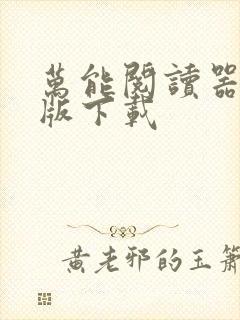 萬能閱讀器
版下載
黃老邪的玉簫